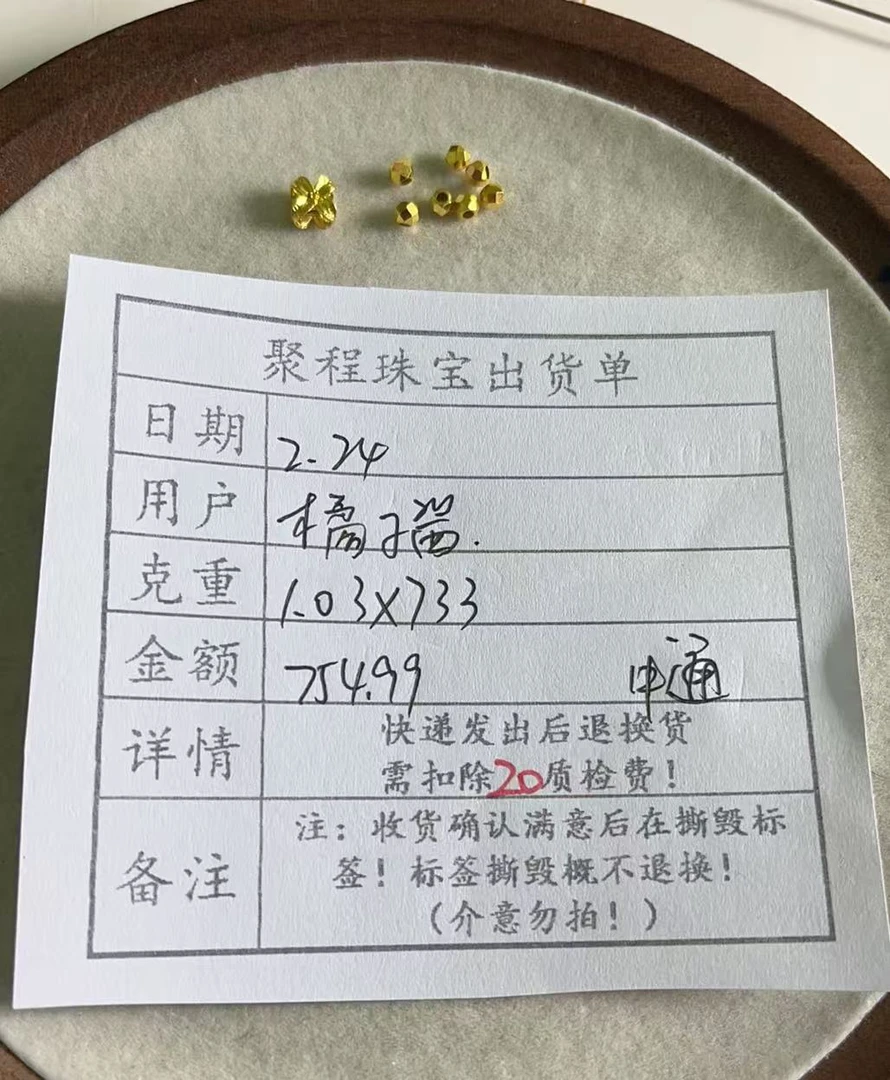 聚程珠宝出货单
日期 2.24
用户 橘子猫.
克重 1.03x733
金额 754.99 申通
详情 快递发出后退换货
需扣除20质检费！
备注 注：收货确认满意后在撕毁标
签！标签撕毁概不退换！
（介意勿拍！）